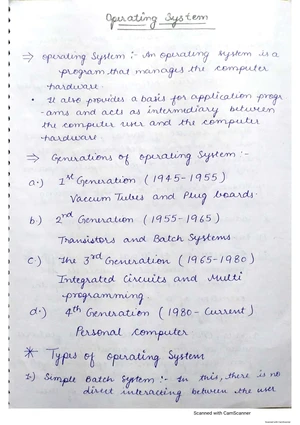 Operating System
⇒ Operating System :- An operating system is a
program that manages the computer
hardware.
• It also provides a basis for application progr
-ams and acts as intermediary between
the computer user and the computer
hardware
⇒ Generations of operating System :-
a.) 1st Generation (1945-1955)
Vaccum Tubes and Plug boards.
b.) 2nd Generation (1955-1965)
Transistors and Batch Systems
c.) The 3rd Generation (1965-1980)
Integrated Circuits and Multi
programming.
d.) 4th Generation (1980- Current)
Personal Computer
* Types of operating System
1.) Simple Batch System :- In this, there is no
direct interacting between the user
Scanned with CamScanner